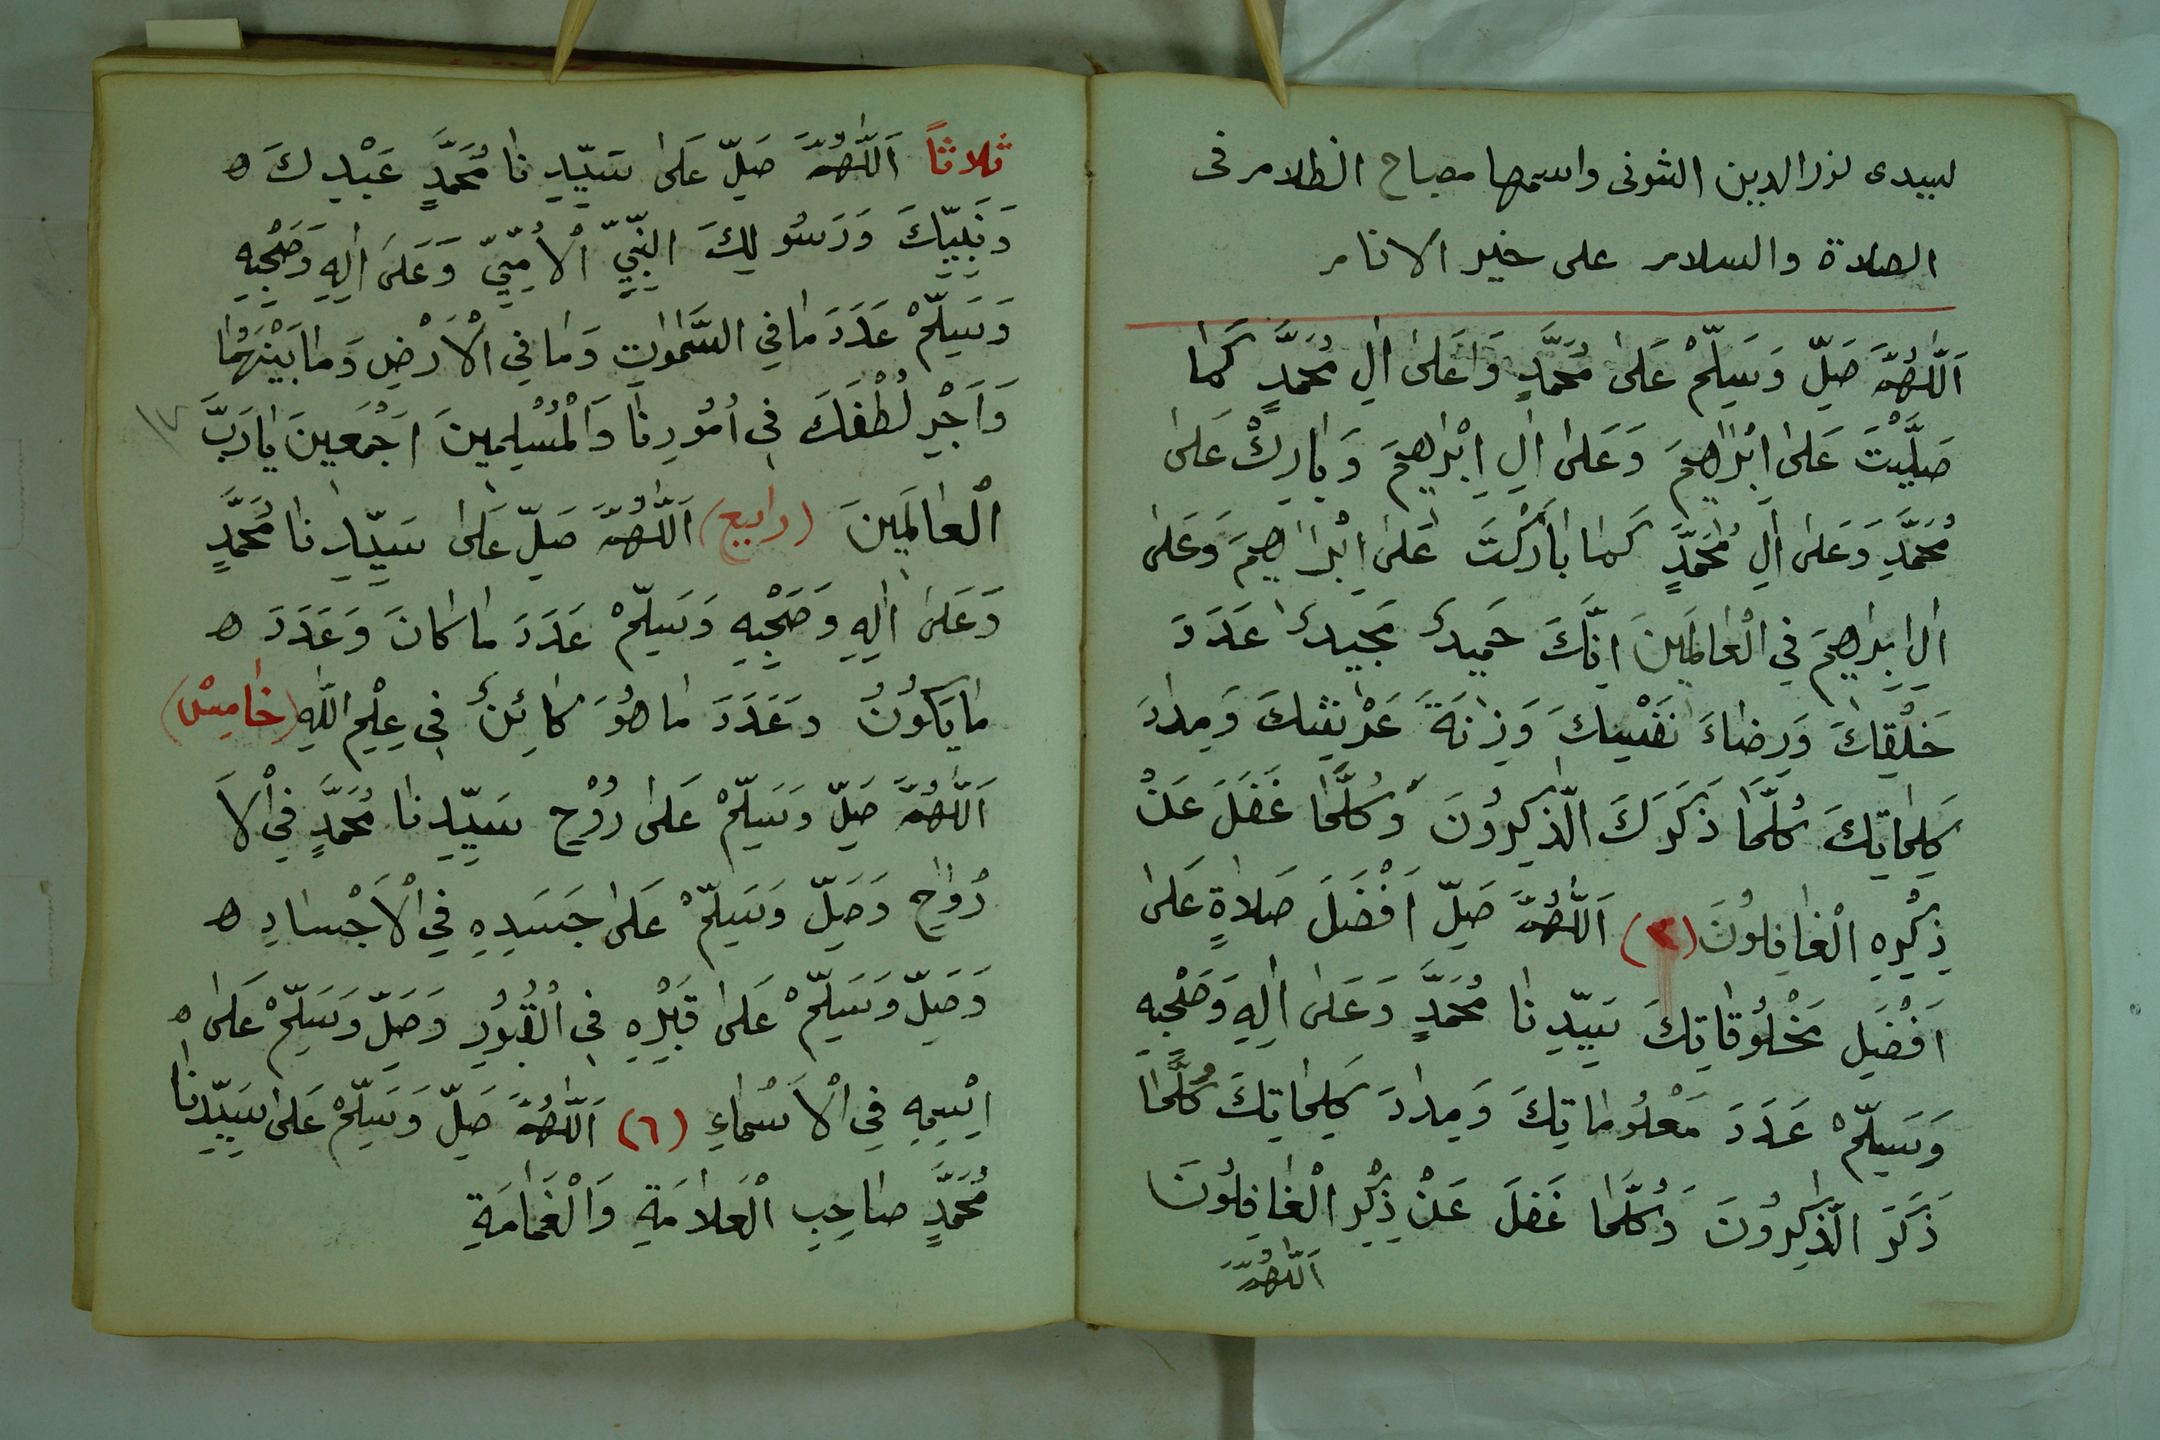 لسيدى نور الدين الشونى واسمها مصباح الظلام فى
الصلاة والسلام على خير الانام
اَللّٰهُمَّ صَلِّ وَسَلِّمْ عَلىٰ مُحَمَّدٍ وَعَلىٰ اٰلِ مُحَمَّدٍ كَمٰا
صَلَّيْتَ عَلىٰ اِبْرٰاهِيمَ وَعَلىٰ اٰلِ اِبْرٰهِيمَ وَبٰارِكْ عَلىٰ
مُحَمَّدٍ وَعَلىٰ اٰلِ مُحَمَّدٍ كَمٰا بٰارَكْتَ عَلىٰ اِبْرٰاهِيمَ وَعَلىٰ
اٰلِ اِبْرٰهِيمَ فِي الْعٰالَمِينَ اِنَّكَ حَمِيدٌ مَجِيدٌ عَدَدَ
خَلْقِكَ وَرِضٰاءَ نَفْسِكَ وَزِنَةَ عَرْشِكَ وَمِدٰادَ
كَلِمٰاتِكَ كُلَّمٰا ذَكَرَكَ الذّٰكِرُونَ وَكُلَّمٰا غَفَلَ عَنْ
ذِكْرِهِ الْغٰافِلُونَ (٢) اَللّٰهُمَّ صَلِّ اَفْضَلَ صَلاٰةٍ عَلىٰ
اَفْضَلِ مَخْلُوقٰاتِكَ سَيِّدِنٰا مُحَمَّدٍ وَعَلىٰ اٰلِهِ وَصَحْبِهِ
وَسَلِّمْ عَدَدَ مَعْلُومٰاتِكَ وَمِدٰادَ كَلِمٰاتِكَ كُلَّمٰا
ذَكَرَ الذّٰكِرُونَ وَكُلَّمٰا غَفَلَ عَنْ ذِكْرِ الْغٰافِلُونَ
اَللّٰهُمَّ
ثلاثاً اَللّٰهُمَّ صَلِّ عَلىٰ سَيِّدِنٰا مُحَمَّدٍ عَبْدِكَ ه
وَنَبِيِّكَ وَرَسُولِكَ النَّبِيِّ الْاُمِّيِّ وَعَلىٰ اٰلِهِ وَصَحْبِهِ
وَسَلِّمْ عَدَدَ مٰا فِي السَّمٰوٰاتِ وَمٰا فِي الْاَرْضِ وَمٰا بَيْنَهُمٰا
وَاَجْرِ لُطْفَكَ فِي اُمُورِنٰا وَالْمُسْلِمِينَ اَجْمَعِينَ يٰا رَبَّ
الْعٰالَمِينَ (رابع) اَللّٰهُمَّ صَلِّ عَلىٰ سَيِّدِنٰا مُحَمَّدٍ
وَعَلىٰ اٰلِهِ وَصَحْبِهِ وَسَلِّمْ عَدَدَ مٰا كٰانَ وَعَدَدَ ه
مٰا يَكُونُ وَعَدَدَ مٰا هُوَ كٰائِنٌ فِي عِلْمِ اللّٰهِ (خٰامِس)
اَللّٰهُمَّ صَلِّ وَسَلِّمْ عَلىٰ رُوْحِ سَيِّدِنٰا مُحَمَّدٍ فِي الْاَ
رْوٰاحِ وَصَلِّ وَسَلِّمْ عَلىٰ جَسَدِهِ فِي الْاَجْسٰادِ ه
وَصَلِّ وَسَلِّمْ عَلىٰ قَبْرِهِ فِي الْقُبُورِ وَصَلِّ وَسَلِّمْ عَلىٰ ه
اِسْمِهِ فِي الْاَسْمٰاءِ (٦) اَللّٰهُمَّ صَلِّ وَسَلِّمْ عَلىٰ سَيِّدِنٰا
مُحَمَّدٍ صٰاحِبِ الْعَلاٰمَةِ وَالْغَمٰامَةِ